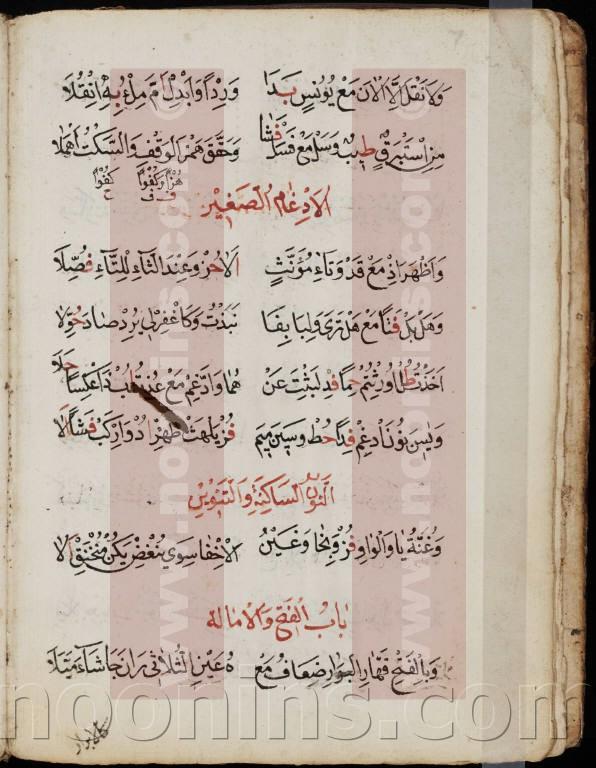 وَلَا نَقْلَ إِلَّا الْآنَ مَعْ يُونُسٍ بَدَا وَرِدْءًا وَأَبْدِلْ أَمَّ مِلْءُ بِهِ انْقُلَا
مِنِ اسْتَبْرَقٍ طِيبٌ وَسَلْ مَعْ فَسَلْ فَشَا وَحَقِّقْ هَمْزَ الْوَقْفِ وَالسَّكْتَ أَهْمَلَا
هُزُءًا وَكُفُوًا كُفُؤًا
الْإِدْغَامُ الصَّغِيرُ
وَأَظْهَرَ إِذْ مَعْ قَدْ وَتَاءِ مُؤَنَّثٍ أَلَا حُزْ وَعِنْدَ الثَّاءِ لِلتَّاءِ فُصِّلَا
وَهَلْ بَلْ فَتًى مَعْ هَلْ تَرَى وَلِبَا بِفَا نَبَذْتُ وَكَاغْفِرْ لِي يُرِدْ صَادَ حُوِّلَا
أَخَذْتُ طُلْ أُورِثْتُمْ حِمًا فِدْ لَبِثْتُ عَنْ هُمَا وَادَّغِمْ مَعْ عُذْتُ أُبْ ذَا اعْكِسًا حَلَا
وَيَسِينَ نُونَ ادْغِمْ فِدًا حُطْ وَسِينَ مِيمَ فُزْ يَلْهَثْ أَظْهِرْ أُدْ وَارْكَبْ فَشَا أَلَا
النُّونُ السَّاكِنَةُ وَالتَّنْوِينُ
وَغُنَّةُ يَا وَالْوَاوِ فُزْ وَبِخَا وَغَيْنٍ الْاخْفَا سِوَى يُنْغِضْ يَكُنْ مُنْخَنِقْ أَلَا
بَابُ الْفَتْحِ وَالْإِمَالَةِ
وَبِالْفَتْحِ قَهَّارِ الْبَوَارِ ضِعَافَ مَعْ هُ عَيْنُ الثُّلَاثِي رَانَ جَا شَاءَ مَيَّلَا
كَالْأَبْرَارِ
www.noonins.com
noonins.com